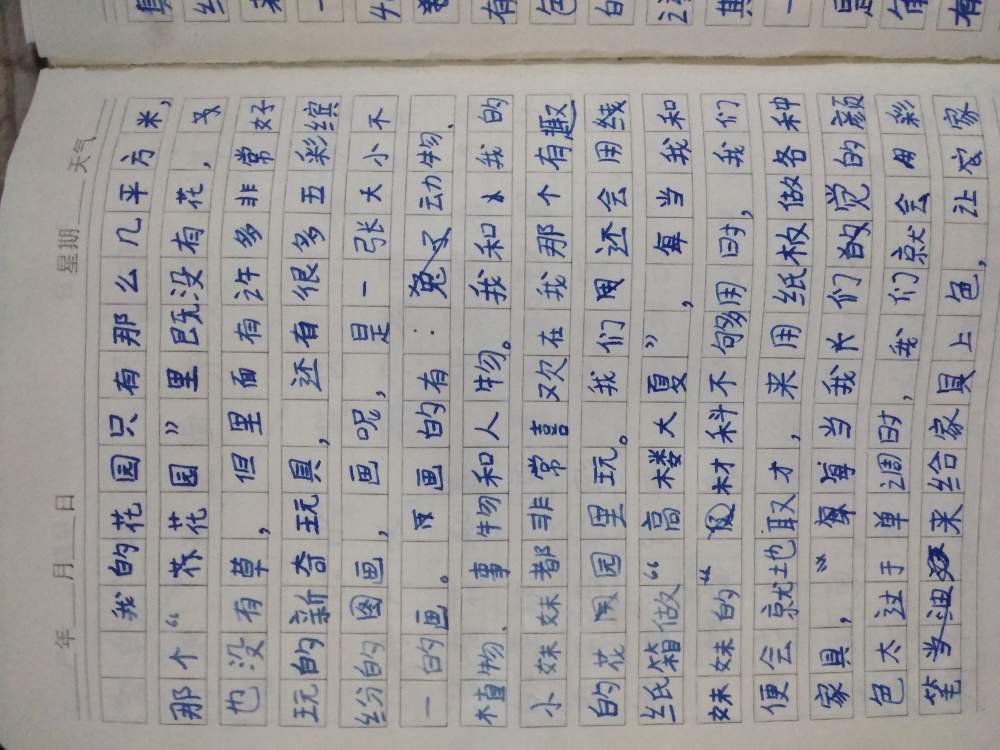 年 月 日 星期 天气
我的花园只有那么几平方米,
那个“花园”里既没有花,
也没有草,但里面有许多非常好
玩的新奇玩具,还有很多五彩缤
纷的图画,画呢,是一张大小不
一的画。画的有:动物.
植物.事物和人物。我和我的
小妹妹都非常喜欢在我那个有趣
的花园里玩。我们还会用线
纸箱做“高楼大夏”,每当我和
妹妹的“材料不够用时,我们
便会就地取才,来用纸板做各种
家具,“每当我们觉的颜
色太过于单调时,我们就会用彩
笔当油来给家具上色,让家